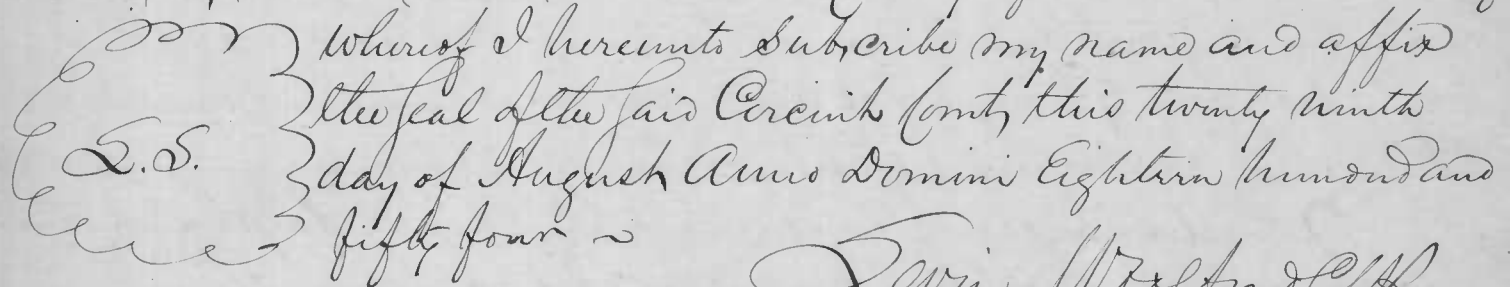 whereof I hereunto Subscribe my name and affix
the Seal of the Said Circuit Court, this twenty ninth
L.S.
day of August Anno Domini Eighteen hundred and
fifty four ~
Levin